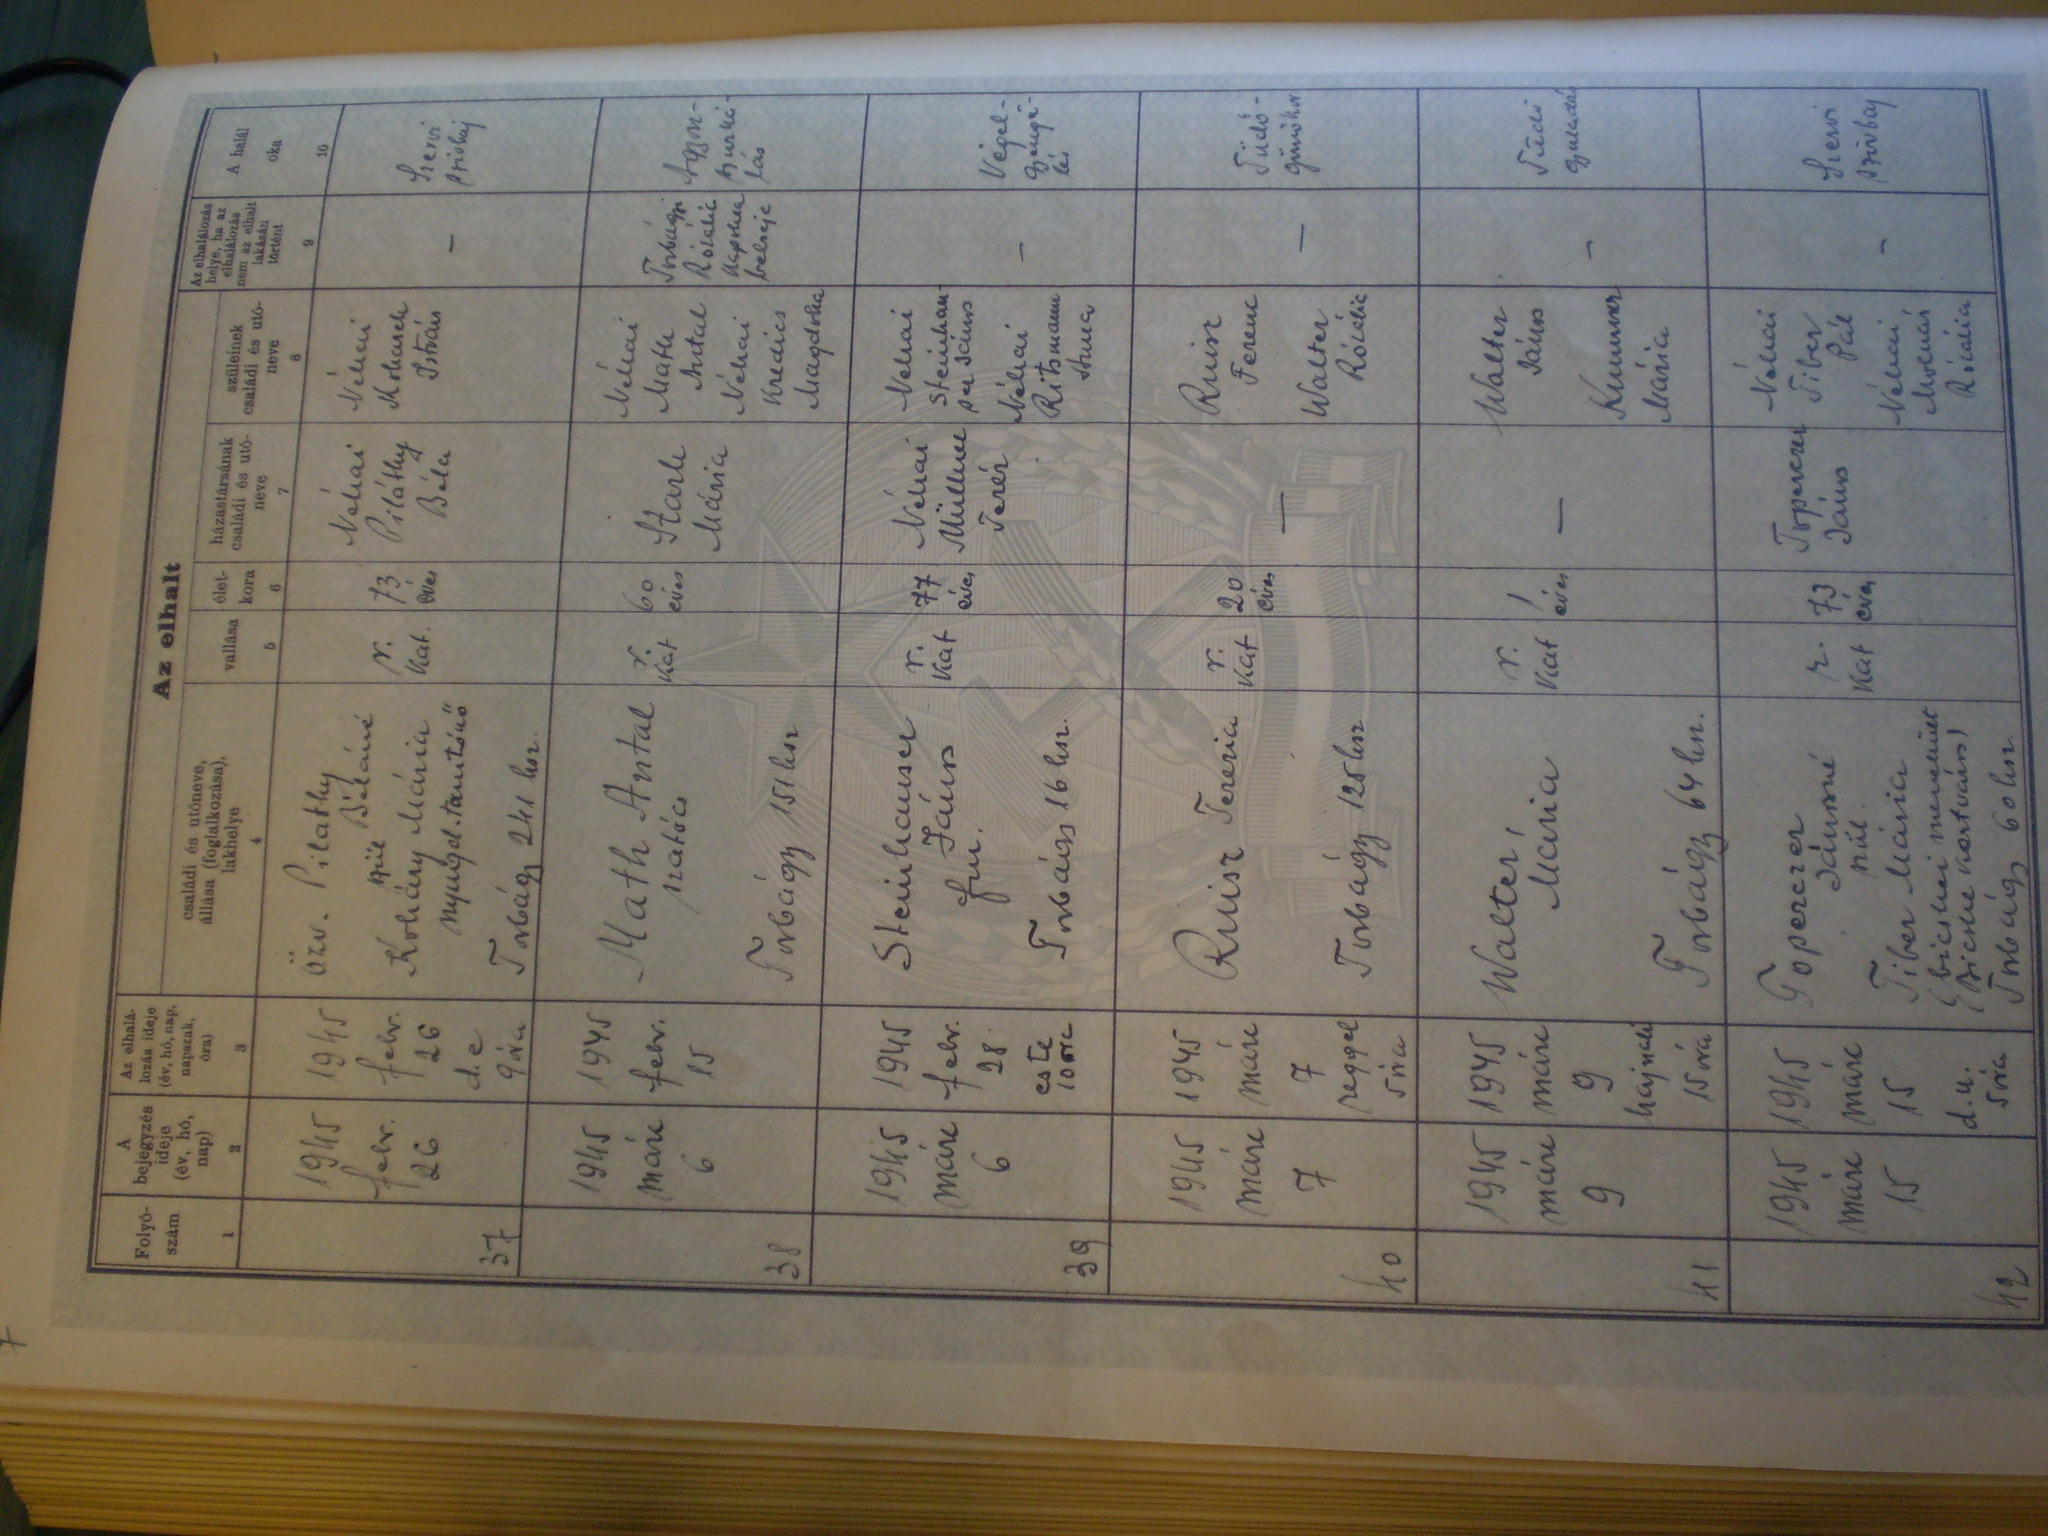 7
Az elhalt
Folyó-
szám
A
bejegyzés
ideje
(év, hó,
nap)
Az elhalá-
lozás ideje
(év, hó, nap,
napszak,
óra)
családi és utóneve,
állása (foglalkozása),
lakhelye
vallása
élet-
kora
házastársának
családi és utó-
neve
szüleinek
családi és utó-
neve
Az elhalálozás
helye, ha az
elhalálozás
nem az elhalt
lakásán
történt
A halál
oka
1
2
3
4
5
6
7
8
9
10
37
1945
febr.
26
1945
febr.
26
d. e
9 óra
özv. Pilathy
Béláné
szül
Mária
nyugd. tanítónő
Torbágy 241 hsz.
r.
kat.
73
éves
Néhai
Piláthy
Béla
Néhai
István
—
Szervi
szívbaj
38
1945
márc
6
1945
febr.
15
Math Antal
szatócs
Torbágy 151 hsz
r.
kat
60
éves
Stark
Mária
Néhai
Math
Antal
Néhai
Kredics
Magdolna
Torbágyi
Rozália
kápolna
belseje
Agyon-
szurká-
lás
39
1945
márc
6
1945
febr.
28
este
10 óra
Steinhauser
János
fm.
Torbágy 16 hsz.
r.
kat
77
éves
Néhai
Müllner
Teréz
Néhai
Steinhau-
ser János
Néhai
Ritsmann
Anna
—
Végel-
gyengü-
lés
40
1945
márc
7
1945
márc
7
reggel
5 óra
Ruisz Terézia
Torbágy 125 hsz
r.
kat
20
éves
—
Ruisz
Ferenc
Walter
Rozália
—
Tüdő-
gümőkór
41
1945
márc
9
1945
márc
9
hajnali
Walter
Mária
Torbágy 64 hsz.
r.
kat
1
éves
—
Walter
János
Kummer
Mária
—
Tüdő
gyulladás
42
1945
márc
15
1945
márc
15
d. u.
5 óra
Toperczer
Jánosné
szül.
Tiber Mária
(bicskei menekült
Torbágy 60 hsz.
r.
kat
73
éves
Topperczer
János
Néhai
Tiber
Pál
Néhai
Molnár
Rozália
—
Szervi
szívbaj